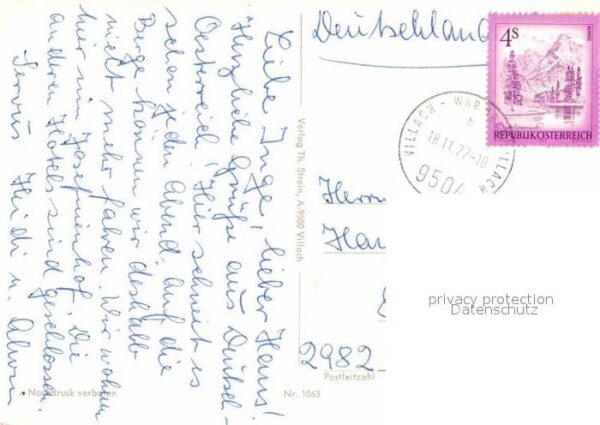 Liebe Inge, lieber Hans!
Herzliche Grüße aus Deutsch-
Oesterreich! Hier schneit es
schon jeden Abend. Auf die
Berge können wir deshalb
nicht mehr fahren. Wir wohnen
hier im Josefinenhof. Die
anderen Hotels sind geschlossen.
Servus Heidi u. Alwin
Nachdruck verboten
Verlag Th. Strein, A-9500 Villach
Nr. 1063
Deutschland
4 S
REPUBLIK ÖSTERREICH
VILLACH - WAR VILLACH
b
18.11.77-18
9504
Herrn
Han
privacy protection
Datenschutz
2982
Postleitzahl